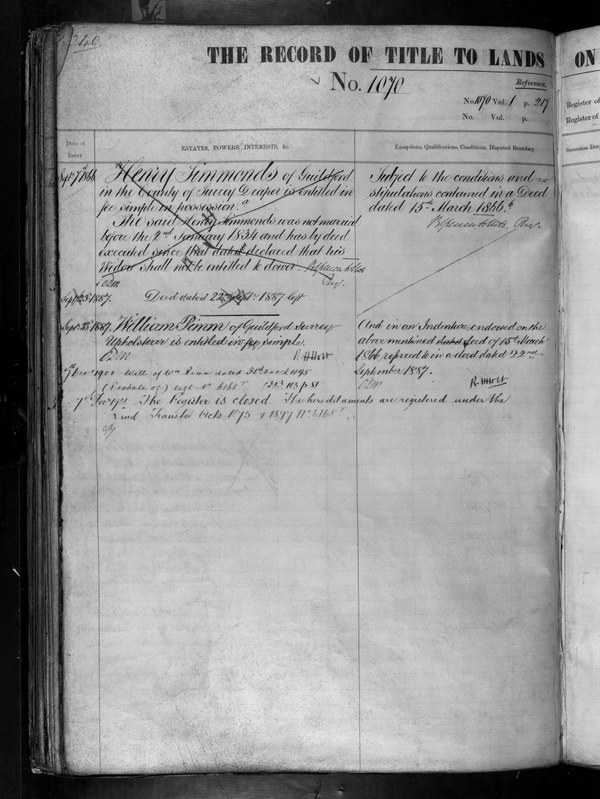 240
THE RECORD OF TITLE TO LANDS
ON
No. 1070
Reference.
No. 1070 Vol. 1 p. 217
No. Vol. p.
Register of
Register of
Date of Entry
ESTATES, POWERS, INTERESTS, &c.
Exceptions, Qualifications, Conditions, Disputed Boundary.
Succession Duty
Sept 7th 1866
Henry Simmonds of Guildford
in the County of Surrey Draper is entitled in
fee simple in possession.
The said Henry Simmonds was not married
before the 2nd January 1834 and has by deed
executed since that date declared that his
Widow shall not be entitled to dower.
Subject to the conditions and
stipulations contained in a Deed
dated 15th March 1866.
Sept 23 1887.
Deed dated 22nd Sept. 1887 left
Sept 23 1887.
William Pimm of Guildford Surrey
Upholsterer is entitled in fee simple.
R H Holt
And in an Indenture endorsed on the
above mentioned deed of 15th March
1866 referred to in a deed dated 22nd
September 1887.
R H Holt
7th Dec 1900 Will of Wm Pimm dated 1895
(Probate of)
7th Dec The Register is closed The hereditaments are registered under the
Land Transfer Acts 1875 & 1897